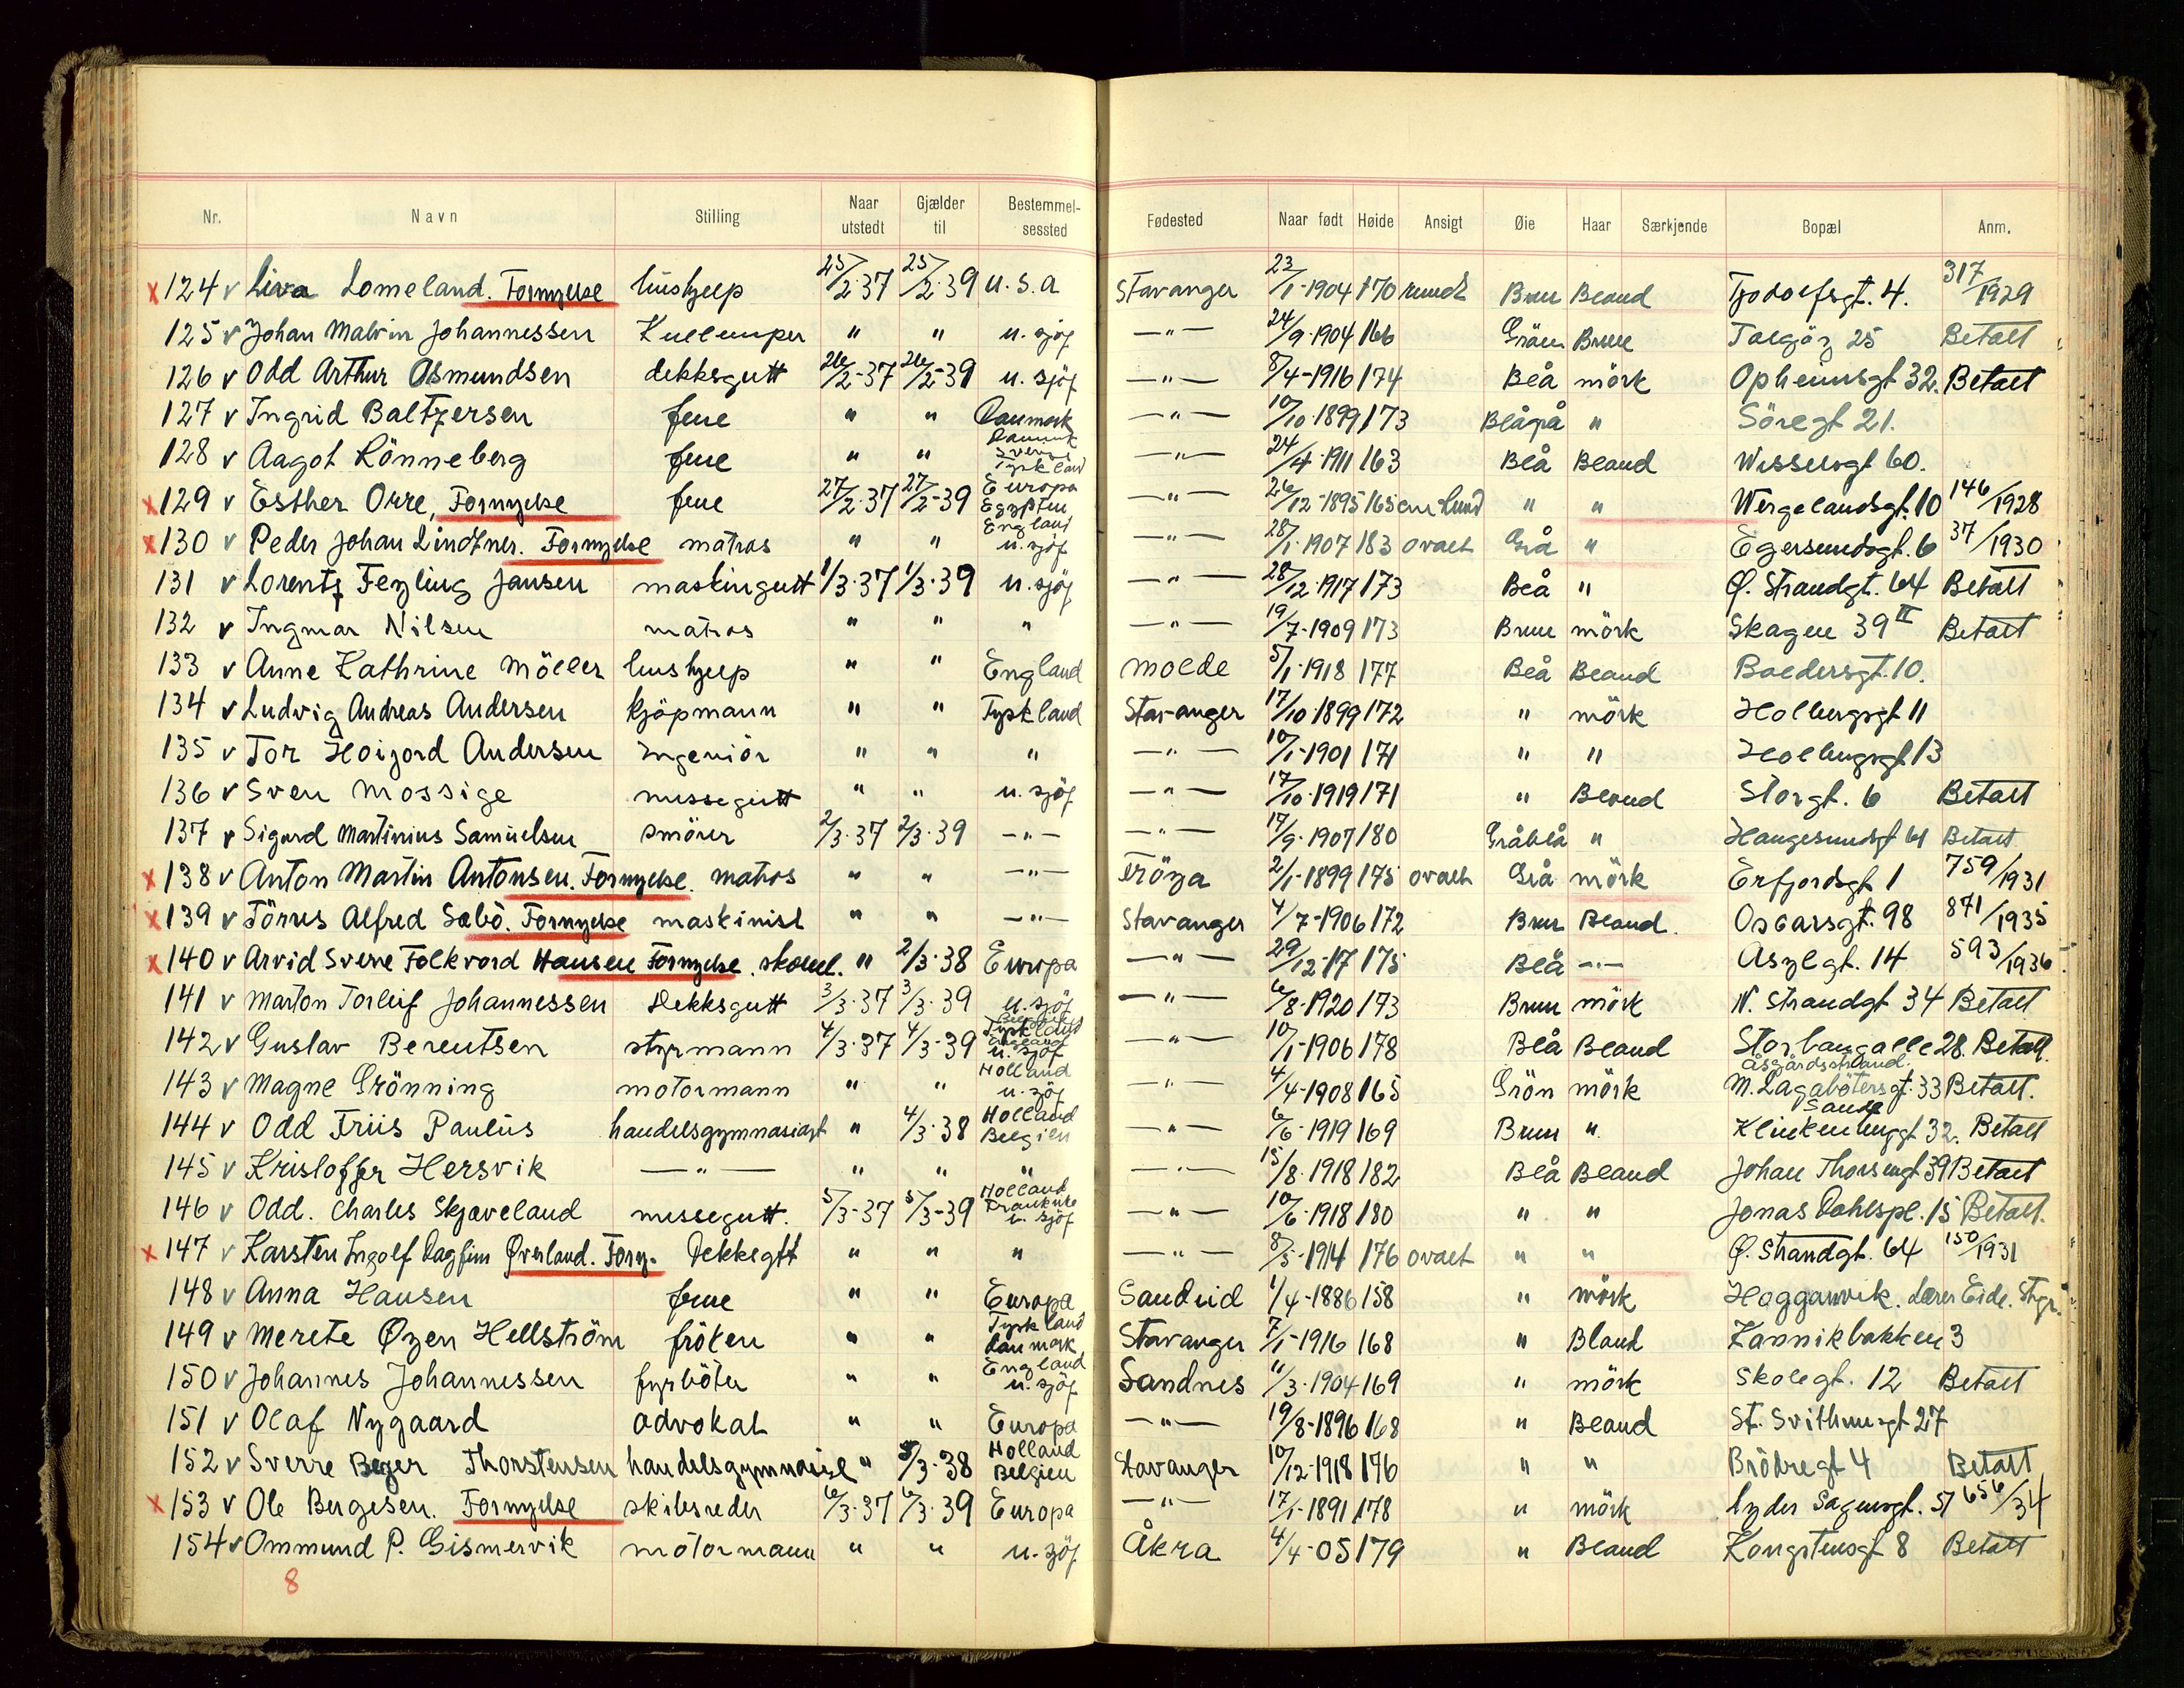 Nr. Navn Stilling Naar utstedt Gjælder til Bestemmelsessted Fødested Naar født Høide Ansigt Øie Haar Særkjende Bopæl Anm.
x 124 v Liva Lomeland. Fornyelse hushjelp 25/2-37 25/2-39 U.S.A Stavanger 23/1-1904 170 rundt Brun Blond Tjodolfsgt. 4. 317/1929
125 v Johan Malvin Johannessen Kullemper " " u. sjøf —"— 24/9-1904 166 Brun Talgöy 25 Betalt
126 v Odd Arthur Osmundsen dekksgutt 26/2-37 26/2-39 u. sjöf —"— 8/4-1916 174 Blå mörk Opheimsgt 32. Betalt
127 v Ingrid Baltzersen frue " " Danmark —"— 10/10-1899 173 Blågrå " Söregt 21.
128 v Aagot Rönneberg frue " " Danmark Sverige Tyskland —"— 24/4-1911 163 Blå Blond Wesselsgt 60.
x 129 v Esther Orre, Fornyelse frue 27/2-37 27/2-39 Europa Egypten England —"— 26/12-1895 165 " " Wergelandsgt. 10 146/1928
x 130 v Peder Johan Lindtner. Fornyelse matros " " u. sjöf —"— 28/1-1907 183 ovalt Grå " Egersundsgt. 6 37/1930
131 v Lorentz Feyling Jansen maskingutt 1/3-37 1/3-39 u. sjöf —"— 28/12-1917 173 Blå " Ø. Strandgt. 64 Betalt
132 v Ingmar Nilsen matros " " " —"— 19/7-1909 173 Brun mörk Skagen 39 II Betalt
133 v Anne Kathrine Möller hushjelp " " England Molde 5/1-1918 177 Blå Blond Baldersgt. 10.
134 v Ludvig Andreas Andersen kjöpmann " " Tyskland Stavanger 17/10-1899 172 " mörk Holbergsgt 11
135 v Tor Hoigord Andersen Ingeniör " " " —"— 10/1-1901 171 " " Holbergsgt 13
136 v Sven Mossige messegutt " " u. sjöf —"— 17/10-1919 171 " Blond Storgt. 6 Betalt
137 v Sigurd Martinius Samuelsen smörer 2/3-37 2/3-39 —"— —"— 17/9-1907 180 Gråblå " Haugesundsgt 61 Betalt
x 138 v Anton Martin Antonsen. Fornyelse. matros " " —"— Fröya 2/1-1899 175 ovalt Grå mörk Erfjordsgt 1 759/1931
x 139 v Törres Alfred Sæbö. Fornyelse maskinist " " —"— Stavanger 4/7-1906 172 Brun Blond. Oscarsgt. 98 871/1935
x 140 v Arvid Sverre Folkvord Hansen Fornyelse. skoleel. " 2/3-38 Europa —"— 29/12-17 175 Blå —"— Asylgt. 14 593/1936
141 v Marton Torleif Johannessen Dekksgutt 3/3-37 3/3-39 u. sjöf —"— 6/8-1920 173 Brun mörk N. Strandgt 34 Betalt
142 v Gustav Berentsen styrmann 4/3-37 4/3-39 Belgien Tyskland England u. sjöf —"— 10/1-1906 178 Blå Blond Storhaugalle 28. Betalt.
143 v Magne Grönning motormann " " Holland u. sjöf —"— 4/4-1908 165 Grön mörk Åsgårdsstrand M. Lagabötersgt. 33 Betalt.
144 v Odd Friis Paulus handelsgymnasiast " 4/3-38 Holland Belgien —"— 6/6-1919 169 Brun " Sande Klinkenberggt 32. Betalt
145 v Kristoffer Hersvik —"— " " " —"— 15/8-1918 182 Blå Blond Johan Thorsengt 39 Betalt
146 v Odd. Charles Skjæveland messegutt. 5/3-37 5/3-39 Holland Frankrike u. sjöf —"— 10/6-1918 180 " " Jonas Dahlspl. 15 Betalt.
x 147 v Karsten Ingolf Dagfinn Øverland. Forny. Dekksgtt " " " —"— 8/5-1914 176 ovalt " " Ø. Strandgt. 64 150/1931
148 v Anna Hansen frue " " Europa Sandeid 1/4-1886 158 " mörk Hogganvik. Lærer Eide.
149 v Merete Øyen Hellström fröken " " Tyskland Danmark Stavanger 7/1-1916 168 " Blond Kannikbakken 3
150 v Johannes Johannessen fyrböter " " England u. sjöf Sandnes 11/3-1904 169 " mörk Skolegt. 12 Betalt
151 v Olaf Nygaard advokat " " Europa —"— 19/8-1896 168 " Blond St. Svithunsgt 27
152 v Sverre Beyer Thorstensen handelsgymnasist " 5/3-38 Holland Belgien Stavanger 10/12-1918 176 " " Brödregt 4 Betalt
x 153 v Ole Bergesen. Fornyelse skibsreder 6/3-37 6/3-39 Europa —"— 17/1-1891 178 " mörk Lyder Sagensgt. 51 656/34
154 v Ommund P. Gismervik motormann " " u. sjöf Åkra 4/4-05 179 " Blond Kongstensgt 8 Betalt
8